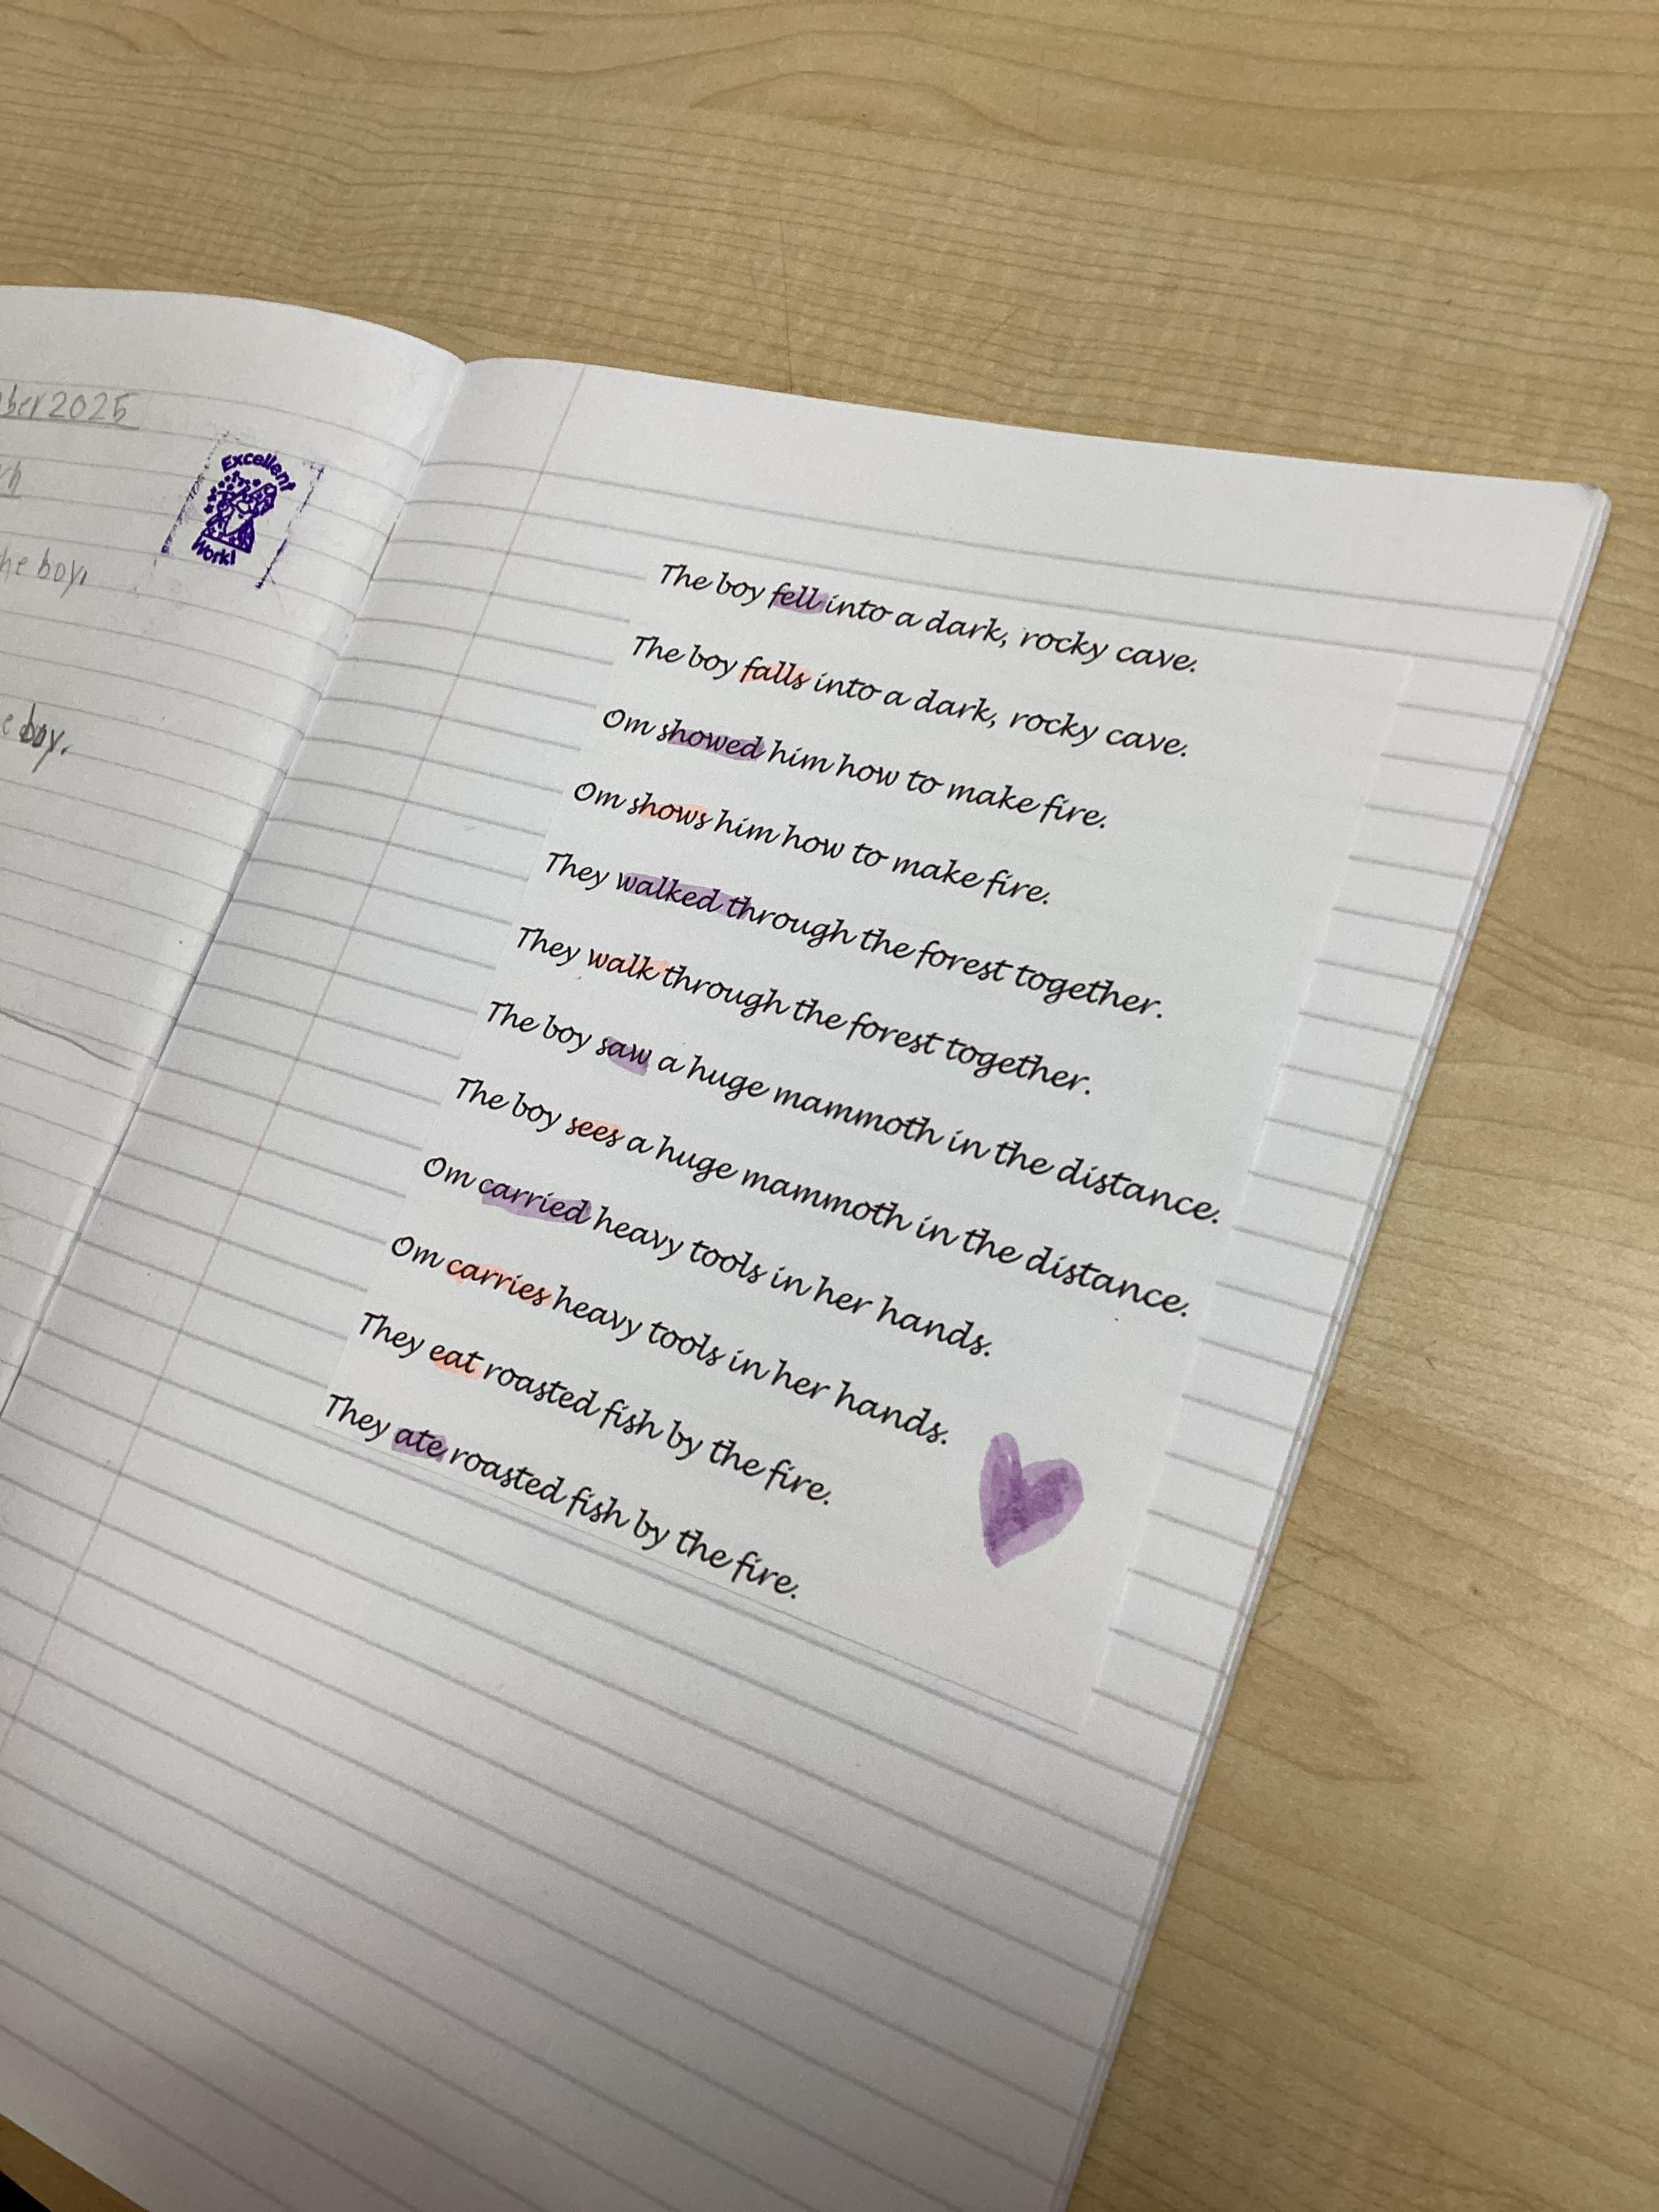 2025
he boy.
boy.
Excellent
Work!
The boy fell into a dark, rocky cave.
The boy falls into a dark, rocky cave.
Om showed him how to make fire.
Om shows him how to make fire.
They walked through the forest together.
They walk through the forest together.
The boy saw a huge mammoth in the distance.
The boy sees a huge mammoth in the distance.
Om carried heavy tools in her hands.
Om carries heavy tools in her hands.
They eat roasted fish by the fire.
They ate roasted fish by the fire.